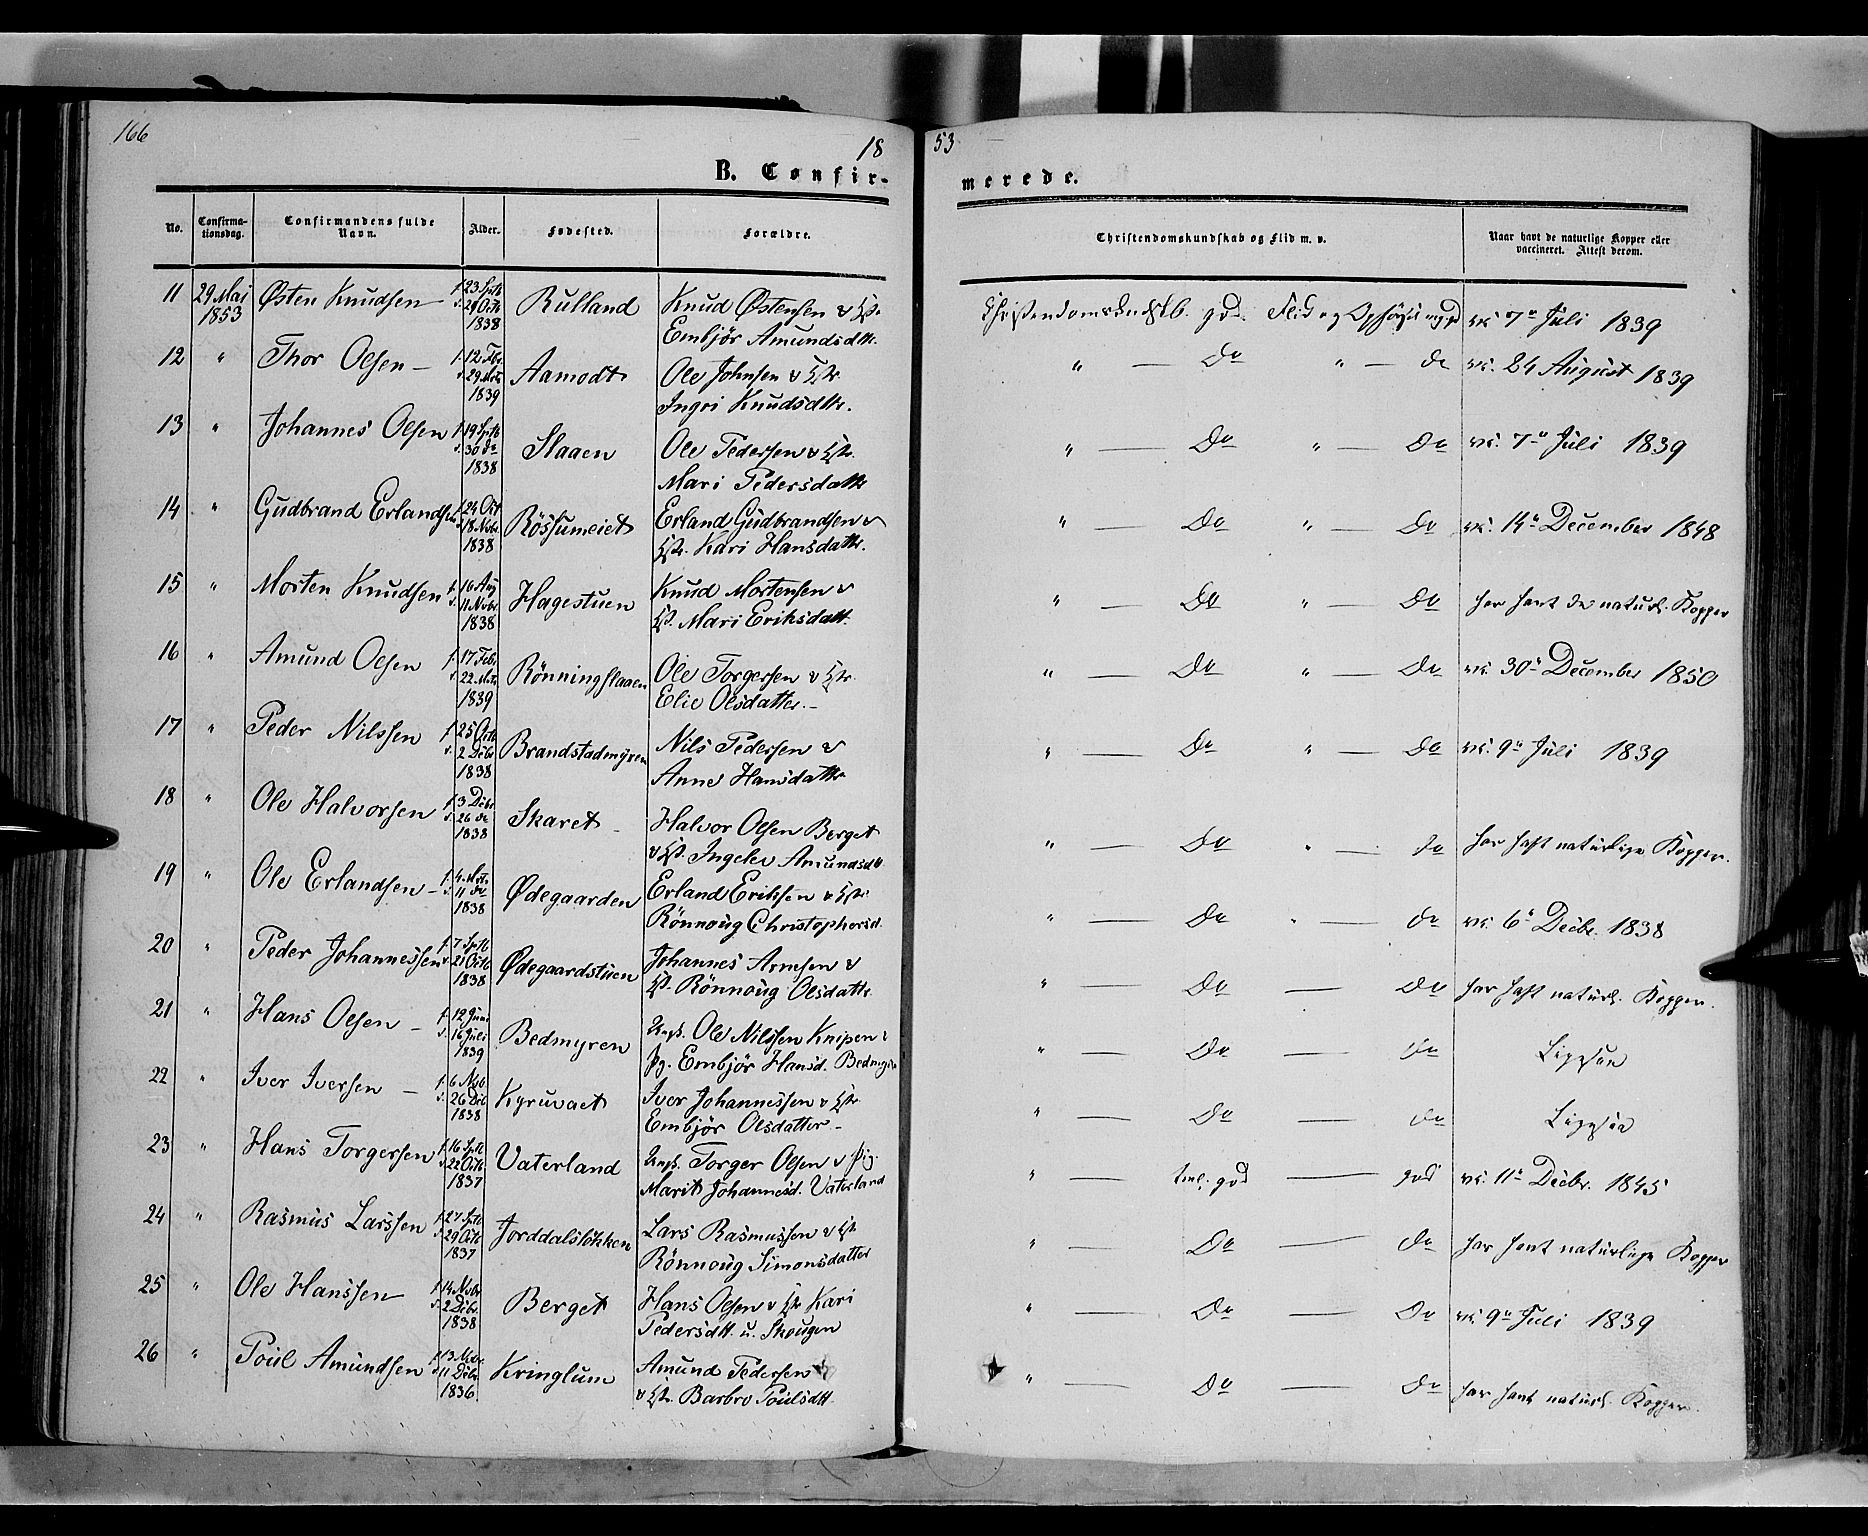 166
18 53
B. Confir- merede.
No. Confirma-tionsdag. Confirmandens fulde Navn. Alder. Fødested. Forældre. Christendomskundskab og Flid m. v. Naar havt de naturlige Kopper eller vaccineret. Attest derom.
11 29 Mai 1853 Østen Knudsen f. 23 Sptb d. 29 Octb 1838 Rulland Knud Østensen & Hstr. Embjör Amundsdttr. Christendomskundskb. god. Flid og Opförsel god vc. 7de Juli 1839
12 " Thor Olsen f. 12 Febr d. 29 Mrts 1839 Aamodt Ole Johnsen & Hstr Ingri Knudsdttr. " — Do " — do vc. 24 August 1839
13 " Johannes Olsen f. 19 Sptb d. 30 do 1838 Slaaen Ole Pedersen & Hstr. Mari Pedersdattr " — Do " — Do vc. 7de Juli 1839
14 " Gudbrand Erlandsen f. 24 Oct d. 18 Novbr 1838 Rössumeiet Erland Gudbrandsen & Hstr. Kari Hansdattr. " — Do " — Do vc. 14de December 1848
15 " Morten Knudsen f. 16 Aug d. 11 Novbr 1838 Hagestuen Knud Mortensen & Hst. Mari Eriksdatt. " — Do " — Do har havt de naturl. Kopper
16 " Amund Olsen f. 17 Febr d. 22 Mrts 1839 Rönningslaaen Ole Torgersen & Hstr. Elie Olsdatter. " — Do " — Do vc. 30te December 1850
17 " Peder Nilssen f. 25 Octb d. 2 Dcbr 1838 Brandstadmyren Nils Pedersen & Anne Hansdattr " — Do " — Do vc. 9de Juli 1839
18 " Ole Halvorsen f. 3 Dcbr d. 26 do 1838 Skaret Halvor Olsen Berget & Hst. Ingelev Amundsdtt " — Do " — do har haft naturlige Kopper.
19 " Ole Erlandsen f. 4 Mrts d. 11 do 1838 Ødegaarden Erland Eriksen & Hstr. Rönnoug Christophersd. " — Do " — do vc. 6te Decbr. 1838
20 " Peder Johannessen f. 7 Sptb d. 21 Octb 1838 Ødegaardstuen Johannes Arnesen & Hst. Rönnoug Olsdattr " — Do — Do har haft naturl. Kopper.
21 " Hans Olsen f. 12 Juni d. 16 Juli 1839 Bedmyren Ungk. Ole Nilssen Knipen & Pg. Embjör Hansd. Bedmyren " — Do — do Ligesaa
22 " Iver Iversen f. 6 Nvb d. 26 Dcb 1838 Kyruvaet Iver Johannessen & Hstr Embjör Olsdatter " — Do — do Ligesaa
23 " Hans Torgersen f. 16 Sptb d. 22 Octb 1837 Vaterland Ungk. Torger Olsen & Pig. Marit Johannesd. Vaterland " — tml. god — god vc. 11te Decbr. 1845
24 " Rasmus Larssen f. 27 Sptb d. 29 Octb 1837 Jorddalslökken Lars Rasmussen & Hst Rönnoug Simonsdatter " — Do — do har havt naturlige Kopper
25 " Ole Hanssen f. 14 Novbr d. 2 Dcbr. 1838 Berget Hans Olsen & Hstr Kari Pedersdtt. u. Skougen " — Do — Do vc. 9de Juli 1839
26 " Poul Amundsen f. 13 Novbr. d. 11 Dcbr 1836 Kringlum Amund Pedersen & Hstr. Barbro Poulsdtt. " — Do — Do har havt naturl. Kopper.